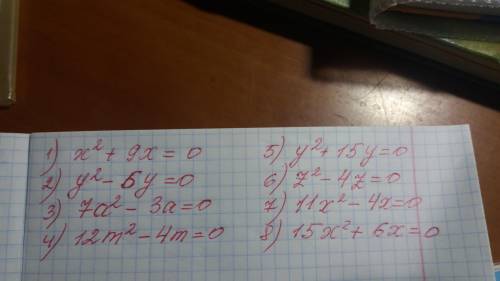 1) x² + 9x = 0
2) y² - 5y = 0
3) 7a² - 3a = 0
4) 12m² - 4m = 0
5) y² + 15y = 0
6) z² - 4z = 0
7) 11x² - 4x = 0
8) 15x² + 6x = 0